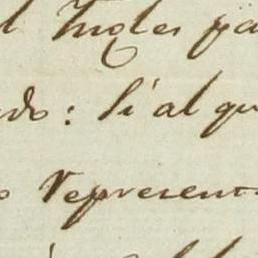 l Ingles pa
ado: Si al qu
o represent